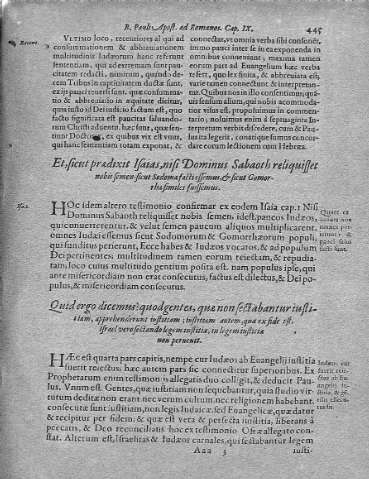 B. Pauli Apost. ad Romanos. Cap. IX. 445
Vltimo loco, recentiores aliqui ad
consummationem & abbreuiationem
multitudinis Iudæorum hanc referunt
sententiam, qui ad extremum sunt
citatem redacti, nimirum, quando
rem Tribus in captiuitatem ductæ sunt,
tio & abbreuiatio in æquitate dicitur,
quia iusto Dei iudicio factum est, quo
facto significatum est paucitas saluando-
rum Christi aduentu hæc fuit, quæ sen-
tunt Doctores, ex quibus vix est vnus,
qui hanc sententiam totam exponat, &
connectat, vt omnia verba sibi consentiant,
immo pauci inter se in ea exponenda in
omnibus conueniunt, maxima tamen
eorum pars ad Euangelium hæc verba
refert, quo lex finita, & abbreuiata est,
varie tamen connectunt & interpretan-
tur. Quibus non in illo consentimus, qui-
us sensum alium, qui nobis accommoda-
tior visus est, proposuimus in commen-
tario; noluimus enim à septuaginta Inter-
pretum verbis discedere, cum & Pau-
lus ita legerit, cumque sensum concor-
dare eorum lectionem cum Hebræa.
Et, sicut prædixit Isaias, nisi Dominus Sabaoth reliquisset
nobis semen sicut Sodoma facti essemus, & sicut Gomor-
rha similes fuissemus.
HOc idem altero testimonio confirmat ex eodem Isaia cap. 1 Nisi
Dominus Sabaoth reliquisset nobis semen, id est, paucos Iudæos,
qui conuerterentur, & velut semen paucum aliquos multiplicarent,
omnes Iudæi essemus sicut Sodomorum & Gomorrhæorum populi,
qui funditus perierunt, Ecce habes & Iudæos vocatos, & ad populum
Dei pertinentes, multitudinem tamen eorum reiectam, & repudia-
tam, loco cuius multitudo gentium posita est, nam populus ipse, qui
ante misericordiam non erat consecutus, factus est dilectus, & Dei po-
pulus, & misericordiam consecutus.
Quid ergo dicemus? quod gentes, quæ non sectabantur iusti-
tiam, apprehenderunt iustitiam; iustitiam autem, quæ ex fide est.
Israel vero sectando legem iustitiæ, in legem iustitiæ
non peruenit.
HÆc est quarta pars capitis, nempe cur Iudæos ab Euangelij iustitia
fuerit reiectus: hæc autem pars sic connectitur superioribus. Ex
Prophetarum enim testimoniis allegatis duo colligit, & deducit Pau-
lus. Vnum est, Gentes, quæ iustitiam non sequebantur, quia studio vir-
tutum deditæ non erant nec verum cultum, nec religionem habebant,
consecutæ sunt iustitiam, non legis Iudaicæ, sed Euangelicæ, quæ datur
& recipitur per fidem, & quæ est vera & perfecta iustitia, liberans à
peccatis, & Deo reconcilians hoc ex testimonio Osee allegato con-
stat. Alterum est, Israëlitas & Iudæos carnales, qui sectabantur legem
Aaa 3 iusti-